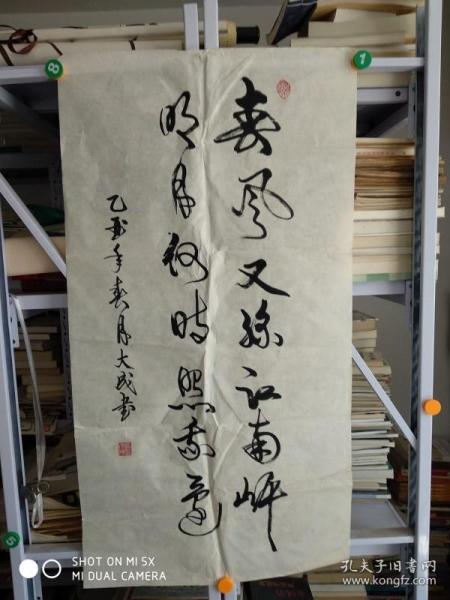 春风又绿江南岸
明月何时照我还
乙酉年春月大成书
8
1
5
SHOT ON MI 5X
MI DUAL CAMERA
孔夫子旧书网
www.kongfz.com